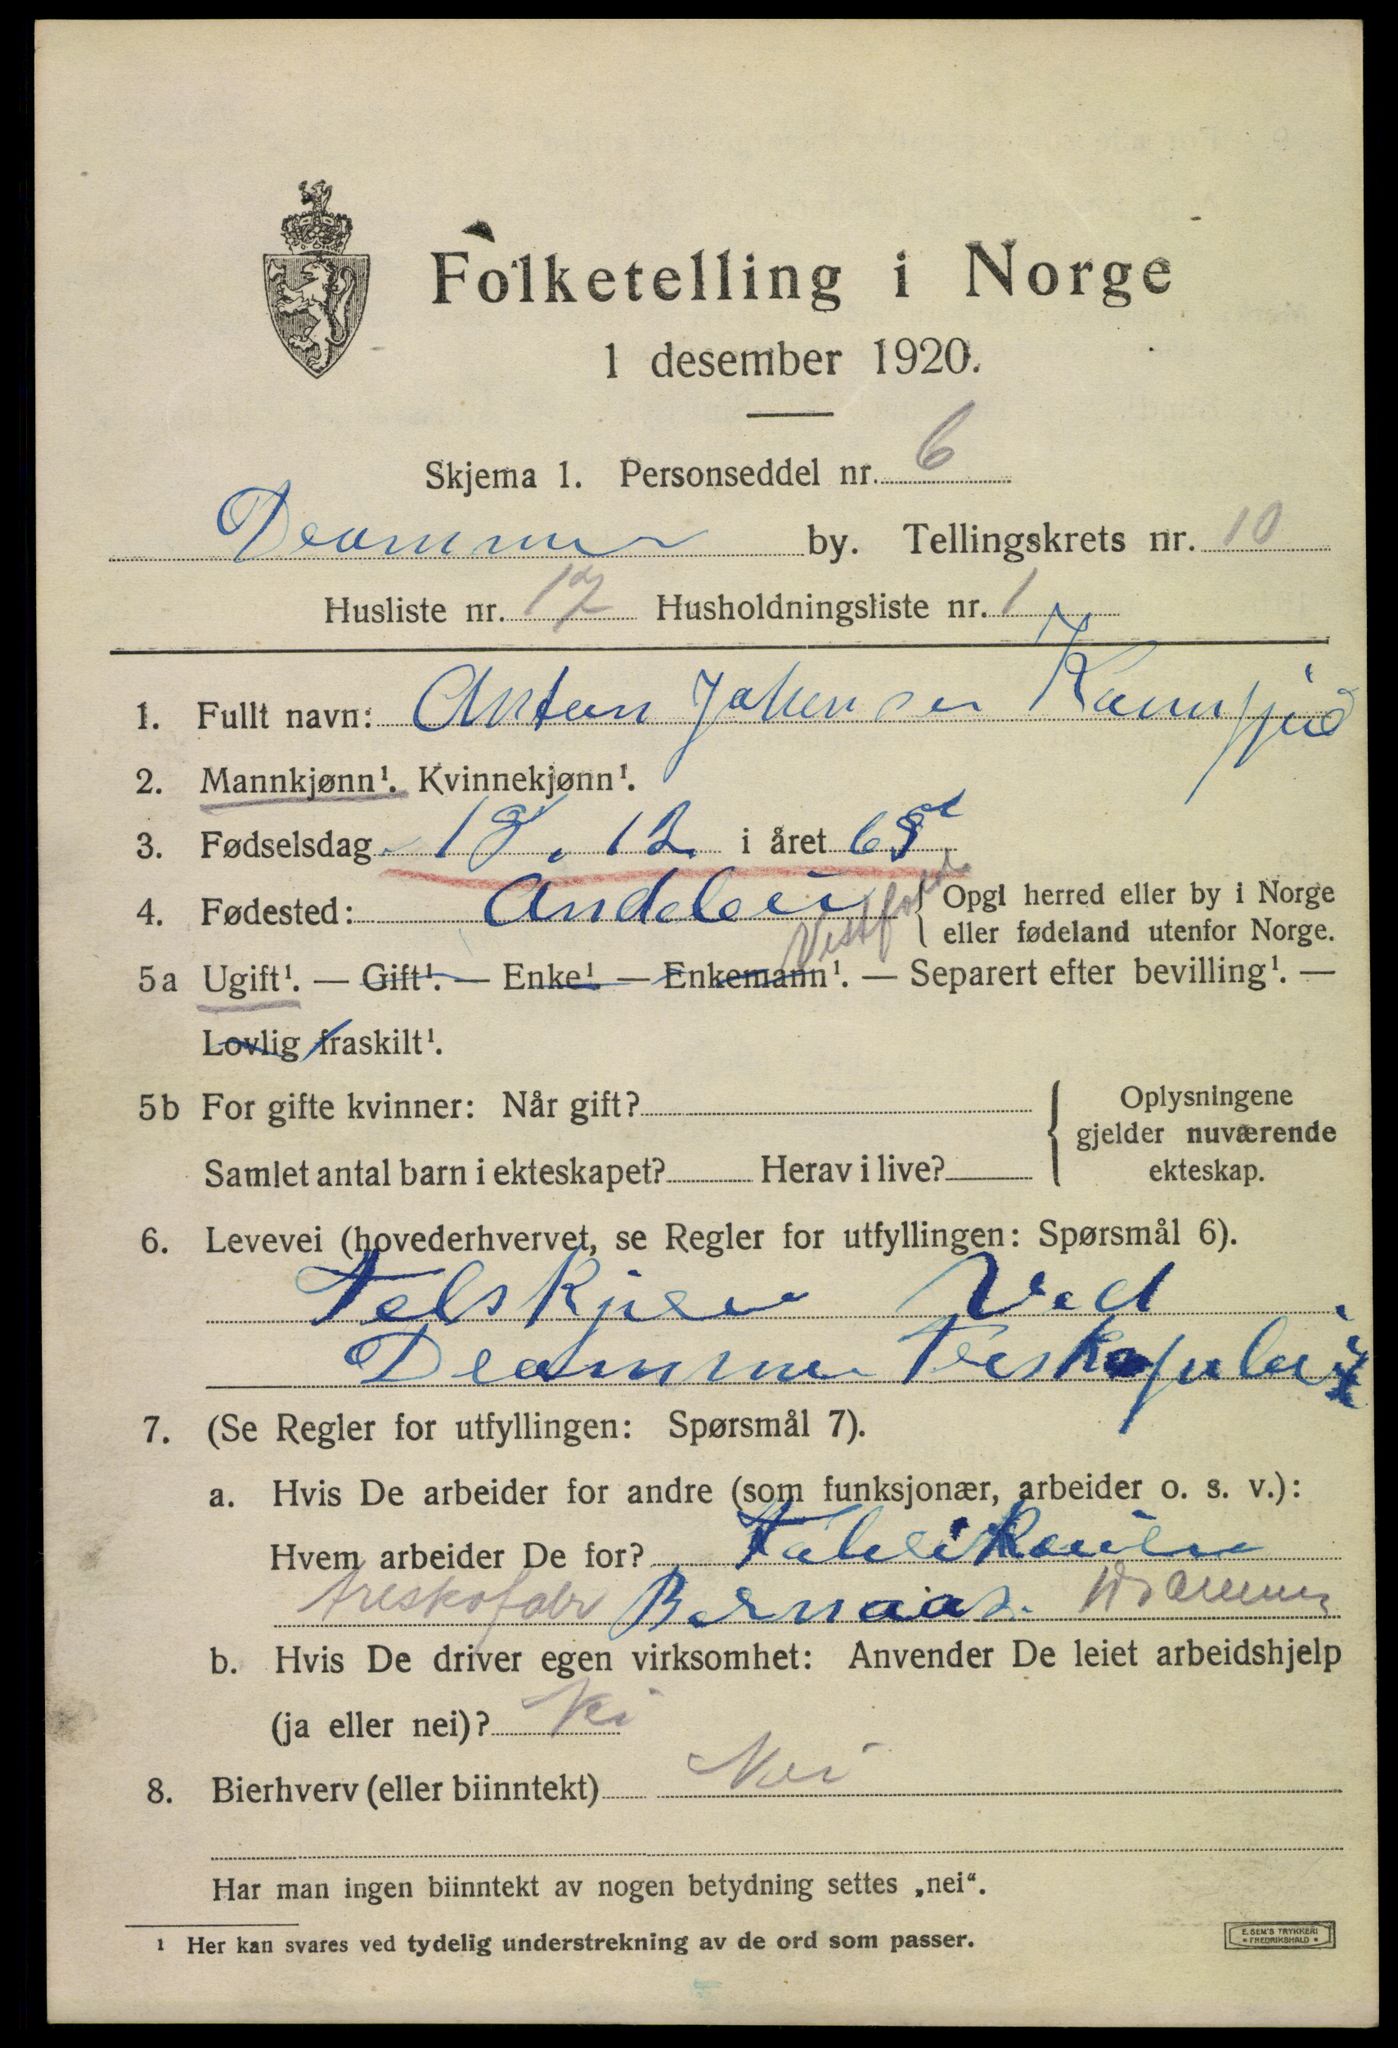 Folketelling i Norge
1 desember 1920.
Skjema 1. Personseddel nr. 6
Drammen by. Tellingskrets nr. 10
Husliste nr. 17 Husholdningsliste nr. 1
1. Fullt navn: Anton Johensen
2. Mannkjønn¹. Kvinnekjønn¹.
3. Fødselsdag 18. 12 i året
4. Fødested: Andebu Vestfold { Opgi herred eller by i Norge
eller fødeland utenfor Norge.
5a Ugift¹. — Gift¹. — Enke¹ — Enkemann¹. — Separert efter bevilling¹. —
Lovlig fraskilt¹.
5b For gifte kvinner: Når gift? { Oplysningene
gjelder nuværende
Samlet antal barn i ekteskapet? Herav i live? ekteskap.
6. Levevei (hovederhvervet, se Regler for utfyllingen: Spørsmål 6).
Ved
Drammen
7. (Se Regler for utfyllingen: Spørsmål 7).
a. Hvis De arbeider for andre (som funksjonær, arbeider o. s. v.):
Hvem arbeider De for?
treskofabr Bernaas. Drammen
b. Hvis De driver egen virksomhet: Anvender De leiet arbeidshjelp
(ja eller nei)? Nei
8. Bierhverv (eller biinntekt) Nei
Har man ingen biinntekt av nogen betydning settes „nei“.
¹ Her kan svares ved tydelig understrekning av de ord som passer.
E. SEM'S TRYKKERI
* FREDRIKSHALD *